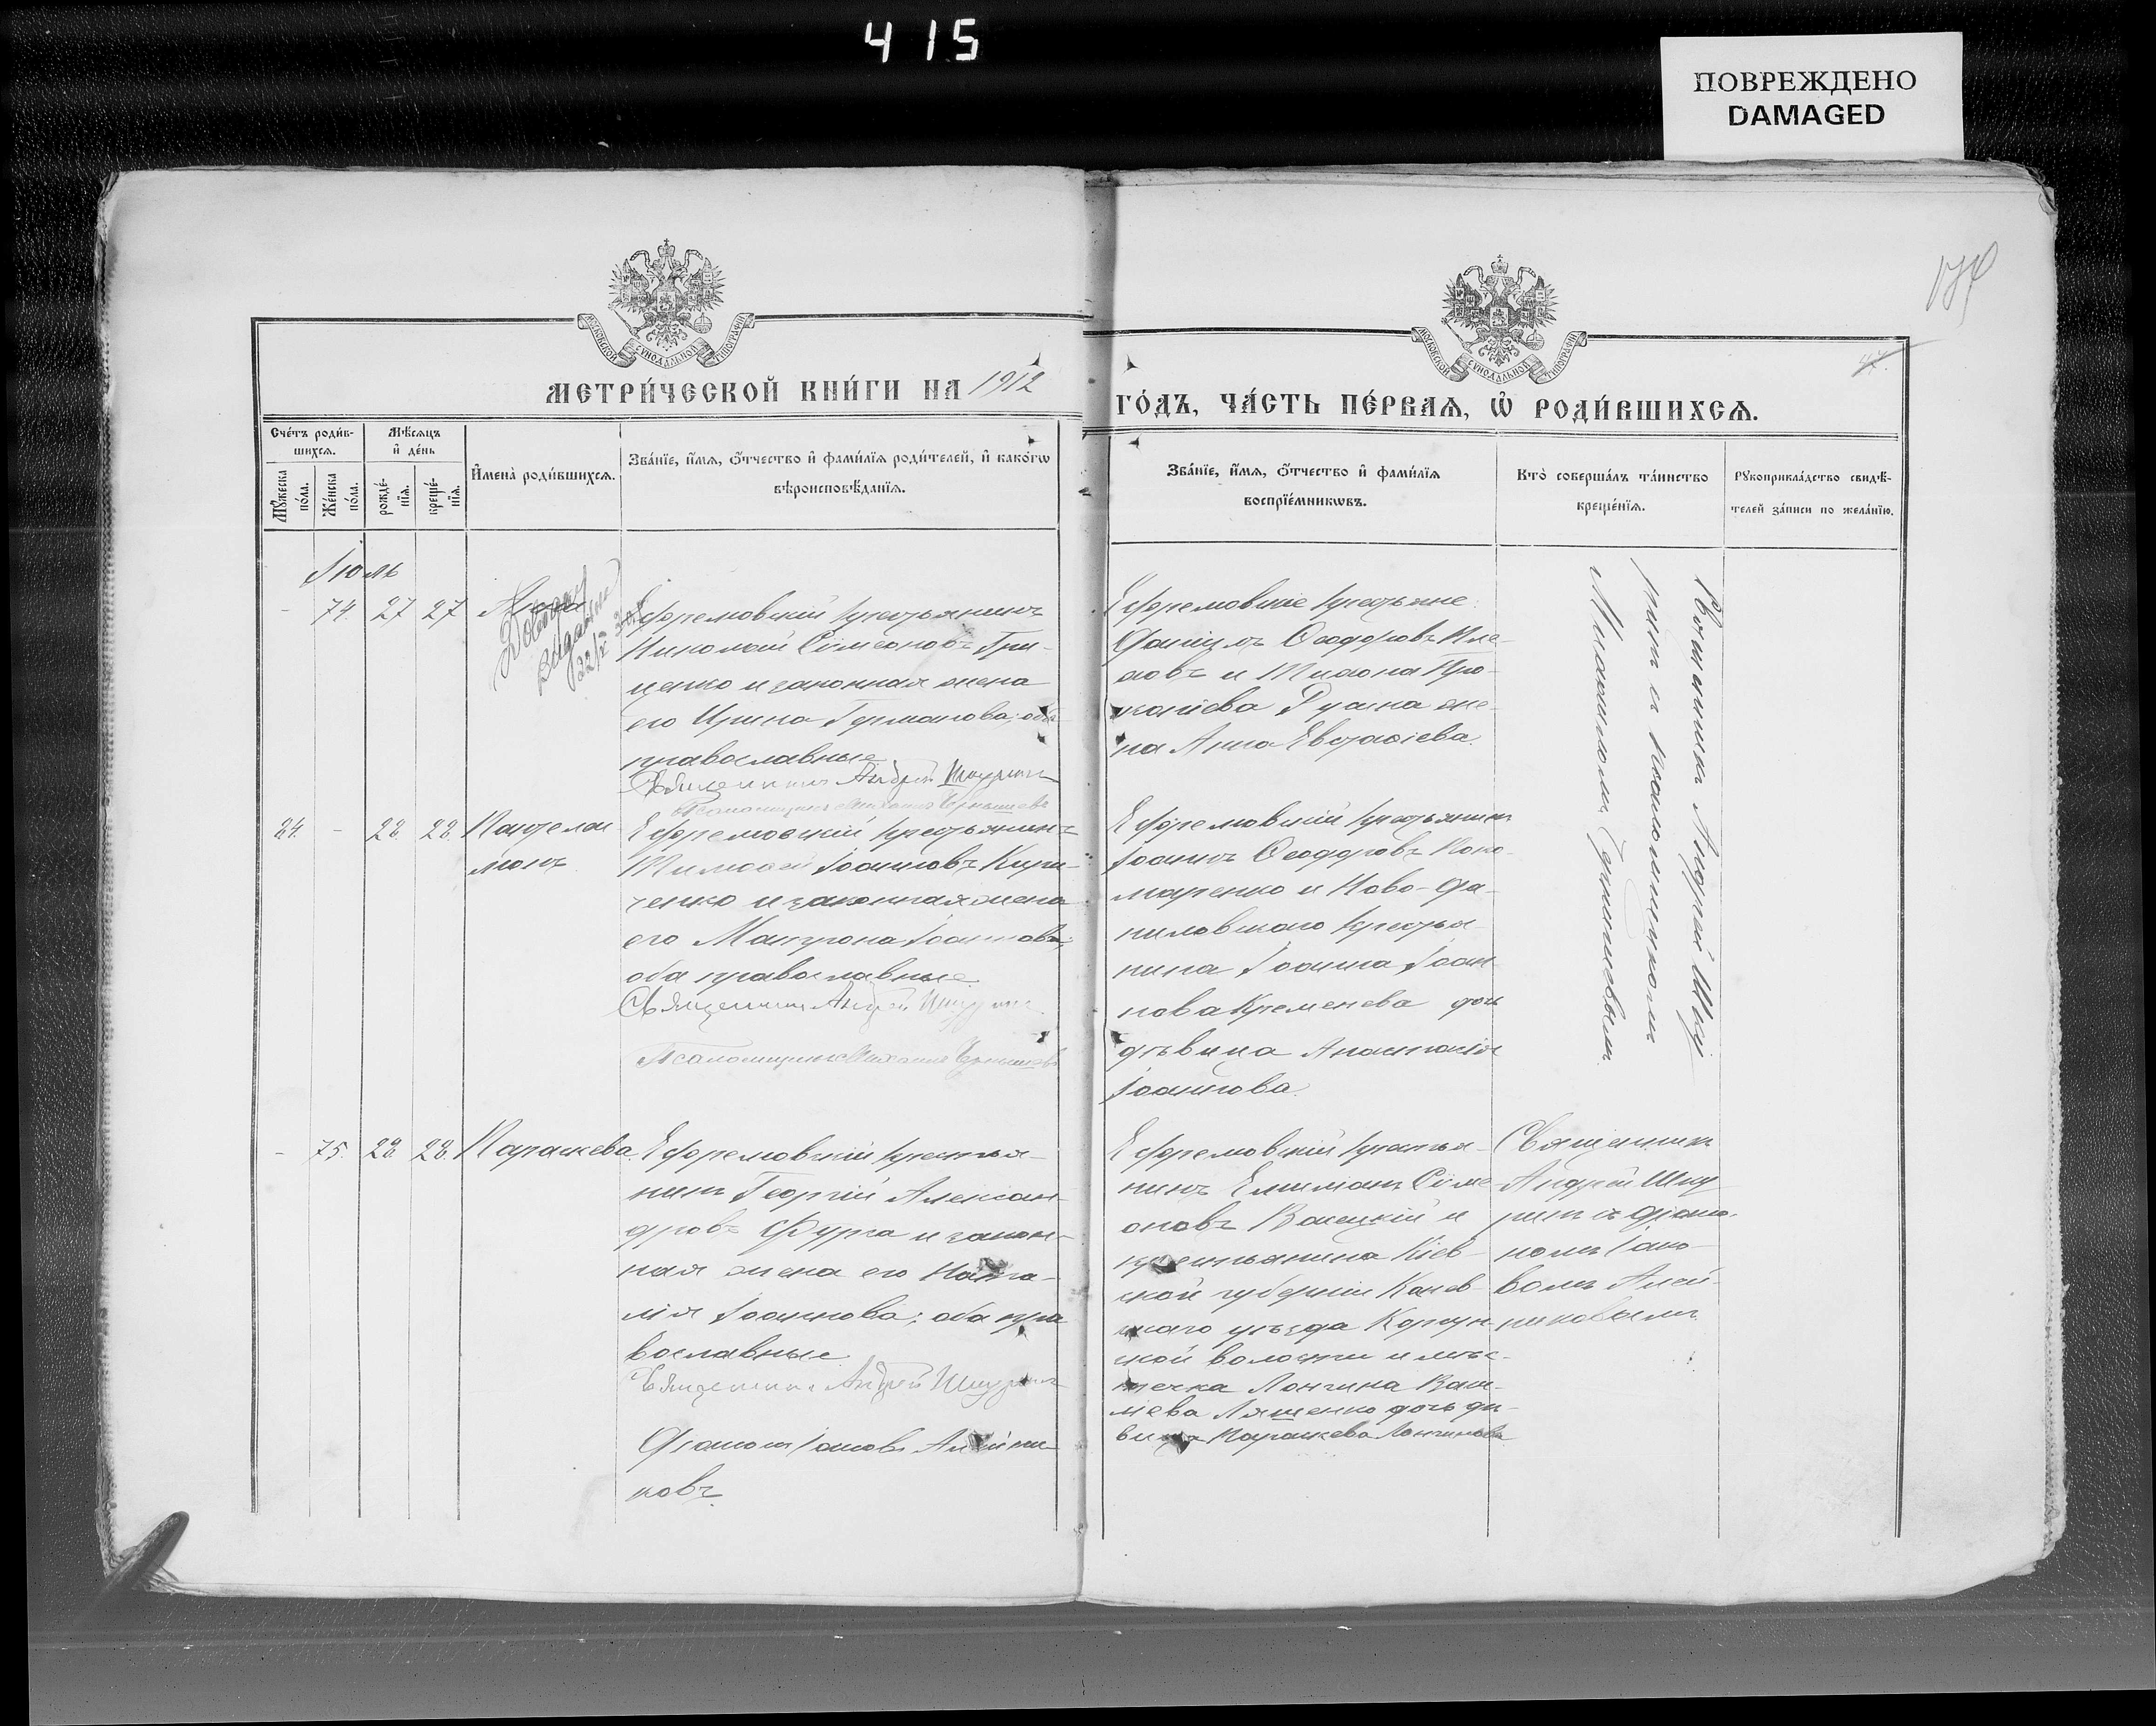 415
ПОВРЕЖДЕНО
DAMAGED
МОСКОВСКОЙ СѴНОДАЛЬНОЙ ТИПОГРАФІИ
МОСКОВСКОЙ СѴНОДАЛЬНОЙ ТИПОГРАФІИ
МЕТРИ́ЧЕСКОЙ КНИ́ГИ НА 1912
ГО́ДЪ, ЧА́СТЬ ПЕ́РВАѦ, Ѡ҆ РОДИ́ВШИХСѦ.
Сче́тъ роди́в-
шихсѧ.
Мꙋ́жеска
по́ла.
Же́нска
по́ла.
Мѣ́сѧцъ
и҆ де́нь
рожде́-
нїѧ.
креще́-
нїѧ.
И҆мена̀ роди́вшихсѧ.
Зва́нїе, и҆́мѧ, ѻ҆́тчество и҆ фами́лїѧ роди́телей, и҆ како́гѡ
вѣроисповѣ́данїѧ.
Зва́нїе, и҆́мѧ, ѻ҆́тчество и҆ фами́лїѧ
воспрїе́мникѡвъ.
Кто̀ соверша́лъ та́инство
креще́нїѧ.
Рꙋкоприкла́дство свидѣ́-
телей за́писи по жела́нїю.
Іюль
- 74. 27 27
Ефремовскій крестьянинъ
Николай Сѵмеоновъ Гри-
ценко и законная жена
его Ирина Германова; оба
православные
Священникъ Андрей Шкуринъ
Псаломщикъ Михаилъ Чернышевъ
Ефремовскіе крестьяне:
Даніилъ Ѳеодоровъ и
жена Анна Евстафіева.
Священникъ Андрей Шку
ринъ и псаломщикомъ
Михаиломъ Чернышевымъ
84. - 28. 28. Пантелеи
монъ
Ефремовскій крестьянинъ
Тимоѳей Іоанновъ Кири-
ченко и законная жена
его Матрона Іоаннова;
оба православные
Священникъ Андрей Шкуринъ.
Псаломщикъ Михаилъ Чернышевъ
Ефремовскій крестьянинъ
Іоаннъ Ѳеодоровъ Поно-
маренко и Ново-Да-
ниловскаго крестья-
нина Іоанна Іоан-
нова Кременева дочь
дѣвица Анастасія
Іоаннова.
- 75. 28 28. Параскева.
Ефремовскій крестья-
нинъ Георгій Алексан-
дровъ Фурса и закон-
ная жена его Ната-
лія Іоаннова; оба пра
вославные
Священникъ Андрей Шкуринъ
Діаконъ Іаковъ Алейни
ковъ.
Ефремовскій крестья-
нинъ Сѵме-
оновъ и
крестьянина Кіев-
ской губерніи Канев-
скаго уѣзда Корсун
ской волости и мѣс-
течка Лонгина
Ляшенко дочь дѣ-
вица Параскева Лонгинова
Священникъ
Андрей Шку
ринъ съ діако-
номъ Іако-
вомъ Алей-
никовымъ.